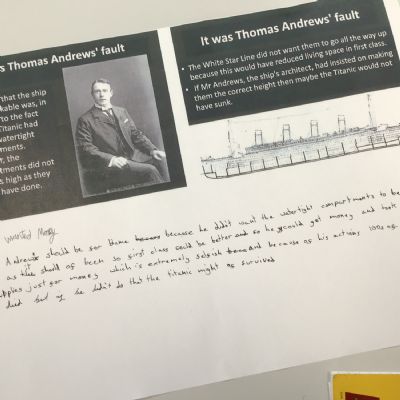 s Thomas Andrews' fault
that the ship
kable was, in
to the fact
Titanic had
watertight
ments.
r, the
tments did not
s high as they
have done.
It was Thomas Andrews' fault
• The White Star Line did not want them to go all the way up
because this would have reduced living space in first class.
• If Mr Andrews, the ship's architect, had insisted on making
them the correct height then maybe the Titanic would not
have sunk.
wanted Money
Andrews should be for blame because he didn't want the watertight compartments to be
as should of been so first class could be better and so he could get money and took
just for money which is extremely selfish and because of his actions 100s of
died but if he didn't do that the titanic might of survived